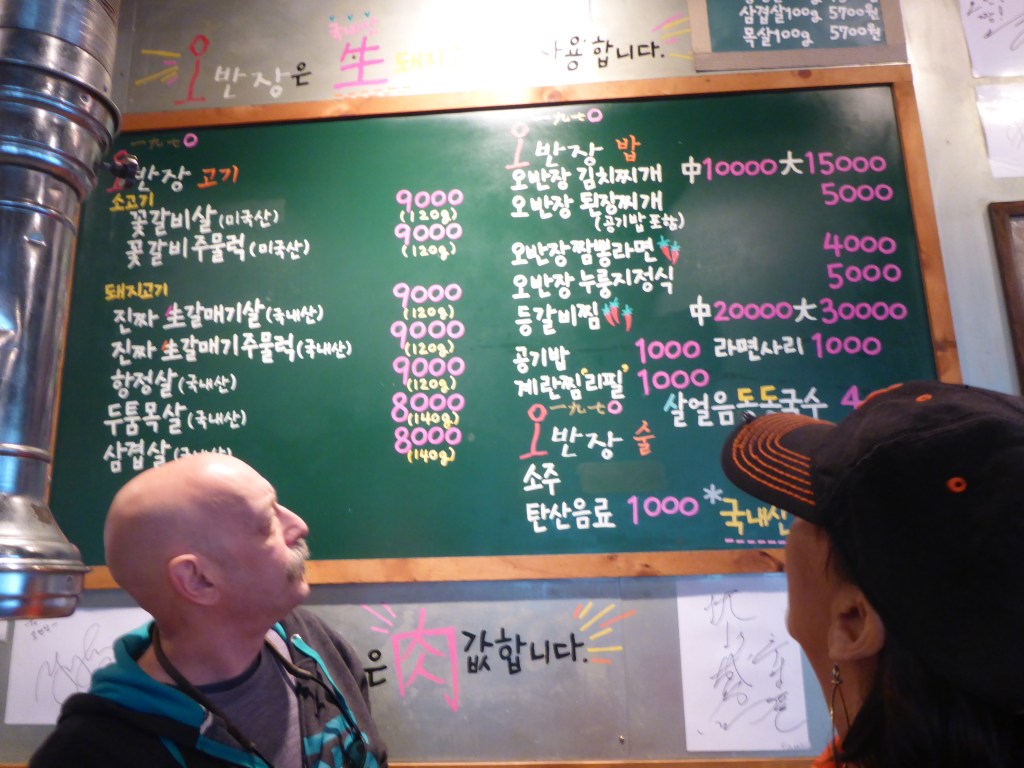 삼겹살100g 5700원
목살100g 5700원
오반장은 生 돼지 사용합니다.
一九七0
오반장 고기
소고기
꽃갈비살(미국산) 9000 (120g)
꽃갈비주물럭(미국산) 9000 (120g)
돼지고기
진짜 生갈매기살(국내산) 9000 (120g)
진짜 生갈매기주물럭(국내산) 9000 (120g)
항정살(국내산) 9000 (120g)
두툼목살(국내산) 8000 (140g)
삼겹살(국내산) 8000 (140g)
一九七0
오반장 밥
오반장 김치찌개 中10000 大15000
오반장 된장찌개 5000
(공기밥 포함)
오반장짬뽕라면 4000
오반장 누룽지정식 5000
등갈비찜 中20000 大30000
공기밥 1000 라면사리 1000
계란찜"리필" 1000
살얼음동동국수 4
一九七0
오반장 술
소주
탄산음료 1000 *국내산
은 肉값합니다.